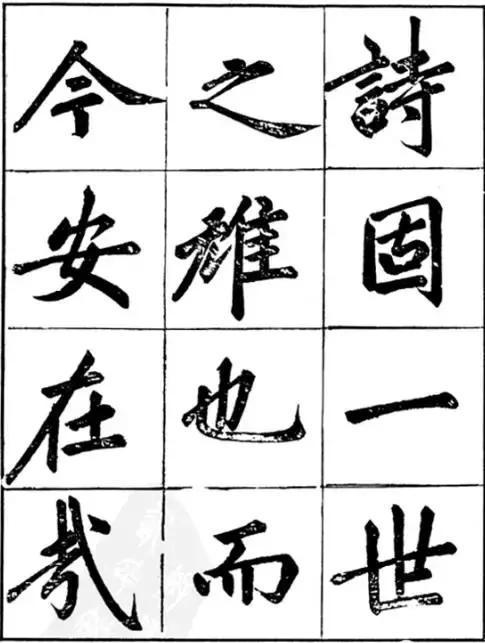 詩固一世
之雄也而
今安在哉